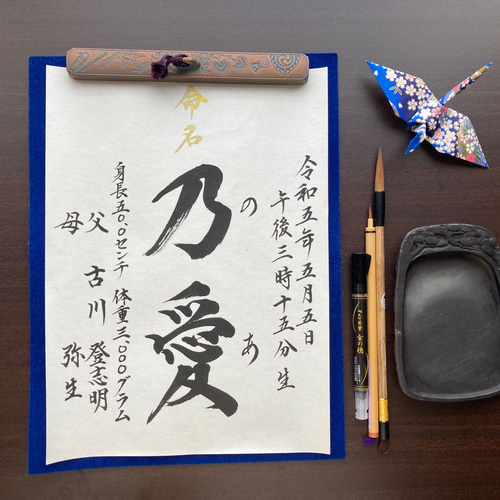 命名
令和五年五月五日
午後三時十五分生
のあ
乃愛
身長五〇.〇センチ 体重三.〇〇〇グラム
父 古川 登志明
母 弥生